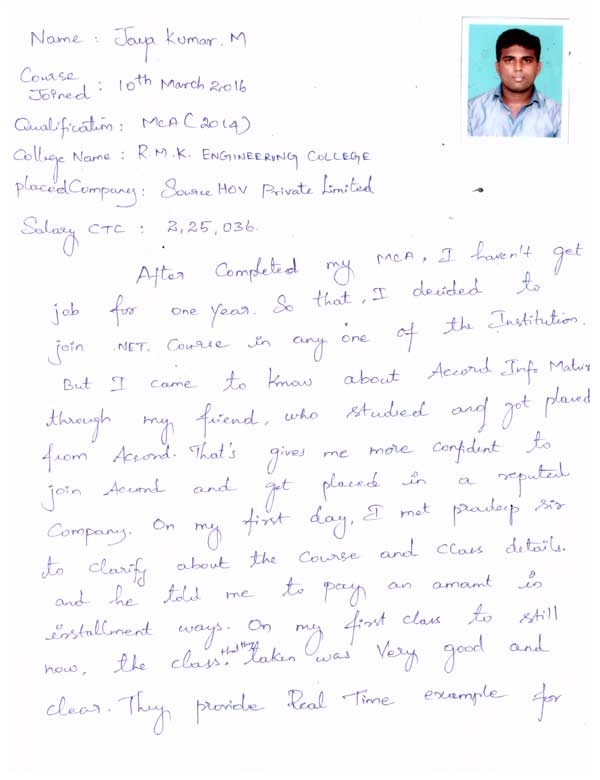 Name : Jaya Kumar. M
Course
Joined : 10th March 2016
Qualification : MCA (2014)
College Name : R.M.K. ENGINEERING COLLEGE
placed Company : Source HOV Private Limited
Salary CTC : 2,25,036.
After Completed my MCA, I haven't get
job for one year. So that, I decided to
join .NET. Course in any one of the Institution.
But I came to know about Accord Info Matrix
through my friend, who studied and got placed
from Accord. That's gives me more confident to
join Accord and get placed in a reputed
Company. On my first day, I met pradeep sir
to clarify about the course and class details.
and he told me to pay an amount in
installment ways. On my first class to still
now, the class that they taken was very good and
clear. They provide Real Time example for